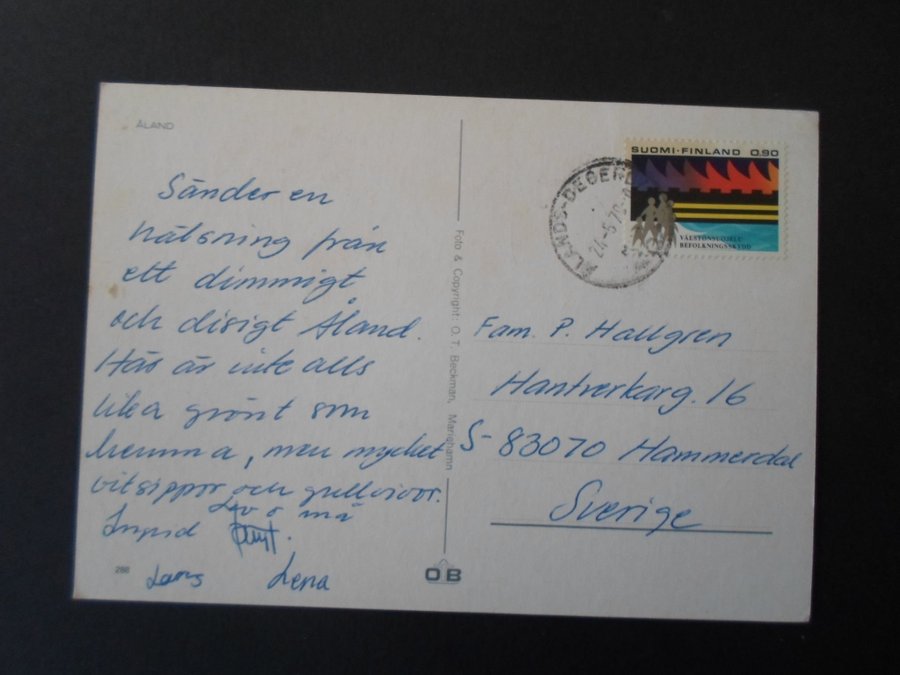 ÅLAND
Sänder en
hälsning från
ett dimmigt
och disigt Åland.
Här är inte alls
lika grönt som
hemma, men mycket
vitsippor och gullvivor.
Lev o må
Ingrid
Lars Lena
286
Foto & Copyright: O. T. Beckman, Mariehamn
OB
SUOMI-FINLAND 0,90
VÄESTÖNSUOJELU
BEFOLKNINGSSKYDD
ÅLANDS-DEGERBY
24-5.79
Fam. P. Hallgren
Hantverkarg. 16
S-83070 Hammerdal
Sverige